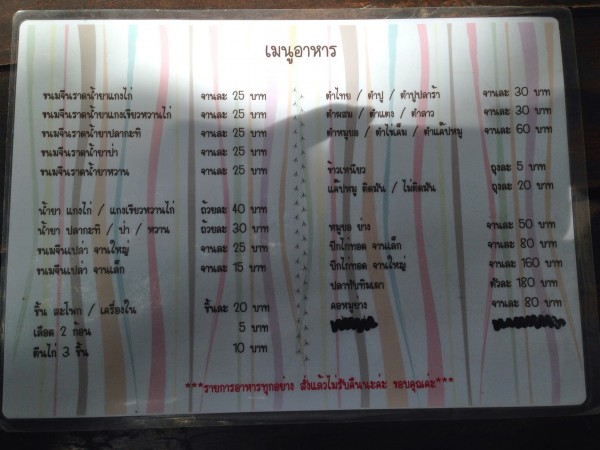 เมนูอาหาร
ขนมจีนราดน้ำยาแกงไก่ จานละ 25 บาท
ขนมจีนราดน้ำยาแกงเขียวหวานไก่ จานละ 25 บาท
ขนมจีนราดน้ำยาปลากะทิ จานละ 25 บาท
ขนมจีนราดน้ำยาป่า จานละ 25 บาท
ขนมจีนราดน้ำยาหวาน จานละ 25 บาท
น้ำยา แกงไก่ / แกงเขียวหวานไก่ ถ้วยละ 40 บาท
น้ำยา ปลากะทิ / ป่า / หวาน ถ้วยละ 30 บาท
ขนมจีนเปล่า จานใหญ่ จานละ 25 บาท
ขนมจีนเปล่า จานเล็ก จานละ 15 บาท
ชิ้น สะโพก / เครื่องใน ชิ้นละ 20 บาท
เลือด 2 ก้อน 5 บาท
ตีนไก่ 3 ชิ้น 10 บาท
ตำไทย / ตำปู / ตำปูปลาร้า จานละ 30 บาท
ตำผสม / ตำแตง / ตำลาว จานละ 30 บาท
ตำหมูยอ / ตำไข่เค็ม / ตำแค๊ปหมู จานละ 60 บาท
ข้าวเหนียว ถุงละ 5 บาท
แค๊ปหมู ติดมัน / ไม่ติดมัน ถุงละ 20 บาท
หมูยอ ย่าง จานละ 50 บาท
ปีกไก่ทอด จานเล็ก จานละ 80 บาท
ปีกไก่ทอด จานใหญ่ จานละ 160 บาท
ปลาทับทิมเผา ตัวละ 180 บาท
คอหมูย่าง จานละ 80 บาท
***รายการอาหารทุกอย่าง สั่งแล้วไม่รับคืนนะค่ะ ขอบคุณค่ะ***